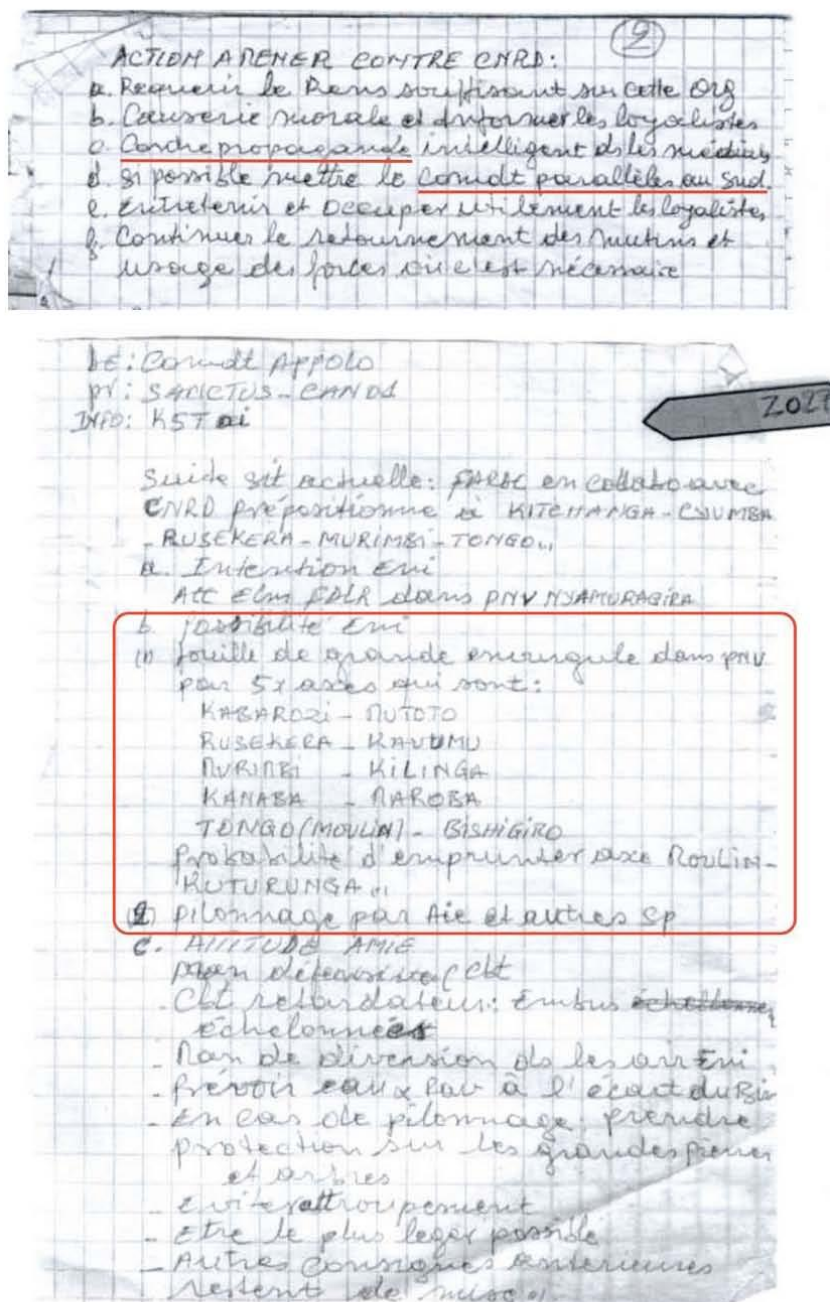 2
ACTION A MENER CONTRE CNRD:
a. Requerir le Rens souffisant sur cette Org
b. Causerie morale et informer les loyalistes
c. Contre propagande intelligent ds les médias
d. si possible mettre le Comdt parallèles au Sud.
e. Entretenir et occuper utilement les loyalistes
f. Continuer le retournement des mutins et
usage des forces où c'est nécessaire
DE: Comdt APPOLO
pr: SANCTUS - CANDA
INFO: KSTai
2027
Suide sit actuelle: FARDC en collabo avec
CNRD prépositionne à KITCHANGA - CYUMBA
- RUSEKERA - MURIMBI - TONGO
a. Intention Eni
Att Elm FDLR dans PNV NYAMURAGIRA
b. possibilité Eni
(1) fouille de grande dans PNV
par 5x axes qui sont:
KABAROZI - MUTOTO
RUSEKERA - KAVUMU
MURIMBI - KILINGA
KANABA - MAROBA
TONGO (MOULIN) - BISHIGIRO
Probabilité d'emprunter axe MOULIN -
RUTURUNGA
(2) Pilonnage par Aie et autres Sp
c. ATTITUDE AMIE
defensive Cbt
- Cbt retardateur: Embus
échelonnées
- Man de diversion ds les arr Eni
- Prévoir eau & Rav à l'écart du
- En cas de pilonnage: prendre
protection sur les grandes pierres
et arbres
- Eviter attroupement
- Etre le plus leger possible
- Autres consignes anterieures
restent de mise